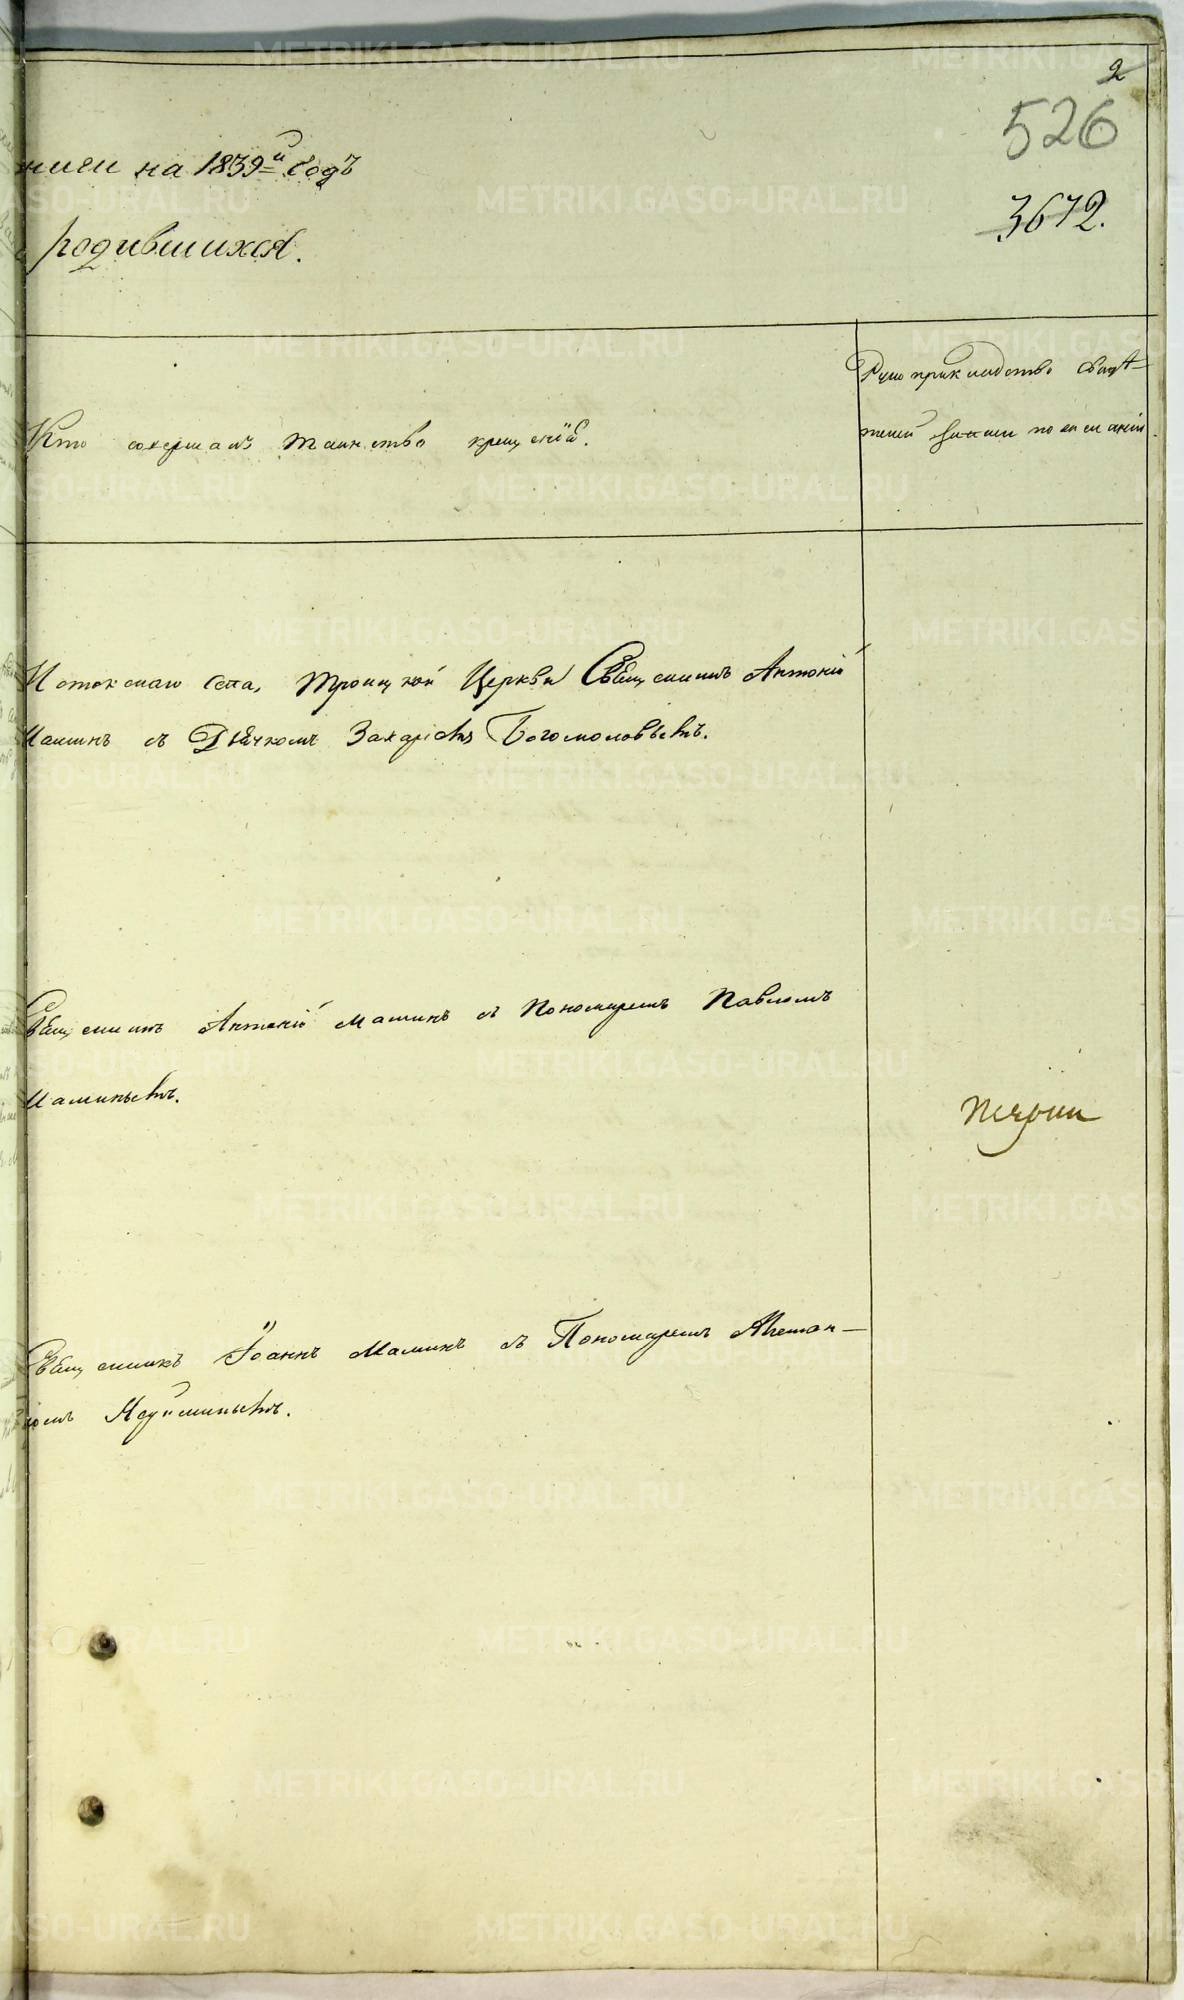 2
526
3672.
ниги на 1839й Годъ
родившихся.
Кто совершалъ таинство крещенія.
Рукоприкладство свидѣ-
телей записи по желанію.
Истокскаго села, Троицкой Церкви Священникъ Антоній
Маминъ съ Дьячкомъ Захаріемъ Богомоловымъ.
Священникъ Антоній Маминъ съ Пономаремъ Павломъ
Маминымъ.
Священникъ Іоаннъ Маминъ съ Пономаремъ
METRIKI.GASO-URAL.RU